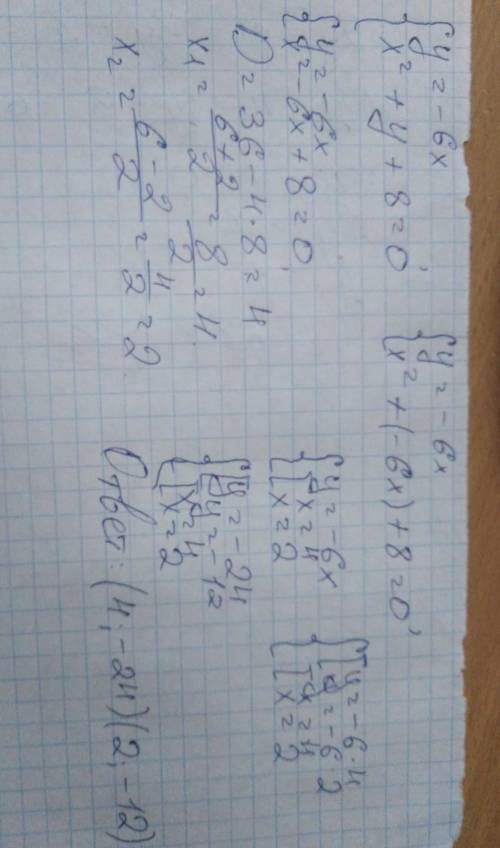 { y = -6x
{ x² + y + 8 = 0;
{ y = -6x
{ x² + (-6x) + 8 = 0;
{ y = -6x
{ x² - 6x + 8 = 0;
D = 36 - 4·8 = 4
x₁ = (6+2)/2 = 8/2 = 4
x₂ = (6-2)/2 = 4/2 = 2
{ y = -6x
{ [ x = 4
[ x = 2
{ [ y = -6·4
[ y = -6·2
{ [ x = 4
[ x = 2
{ [ y = -24
[ y = -12
{ [ x = 4
[ x = 2
Ответ: (4; -24)(2; -12)